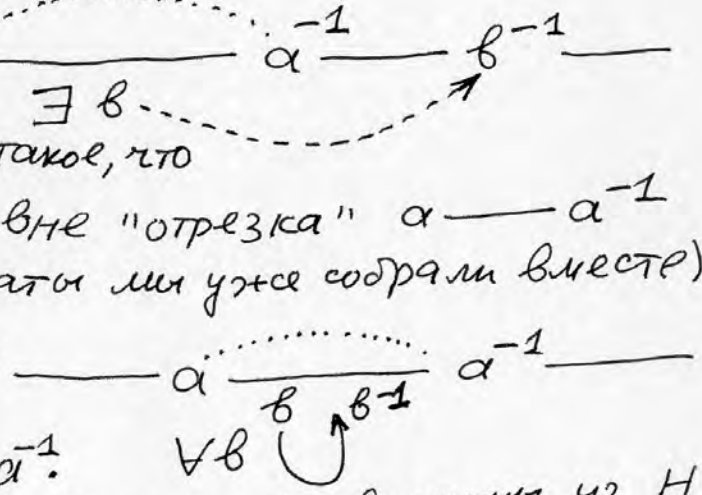 a⁻¹ —— в⁻¹ ——
∃ в
такое, что
вне "отрезка" a —— a⁻¹
мы уже собрали вместе)
—— a —— a⁻¹ ——
в в⁻¹
a⁻¹. ∀в
из H